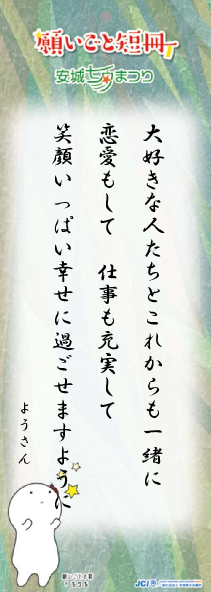 願いごと短冊
安城七夕まつり
大好きな人たちとこれからも一緒に
恋愛もして 仕事も充実して
笑顔いっぱい幸せに過ごせますように
ようさん
JCI